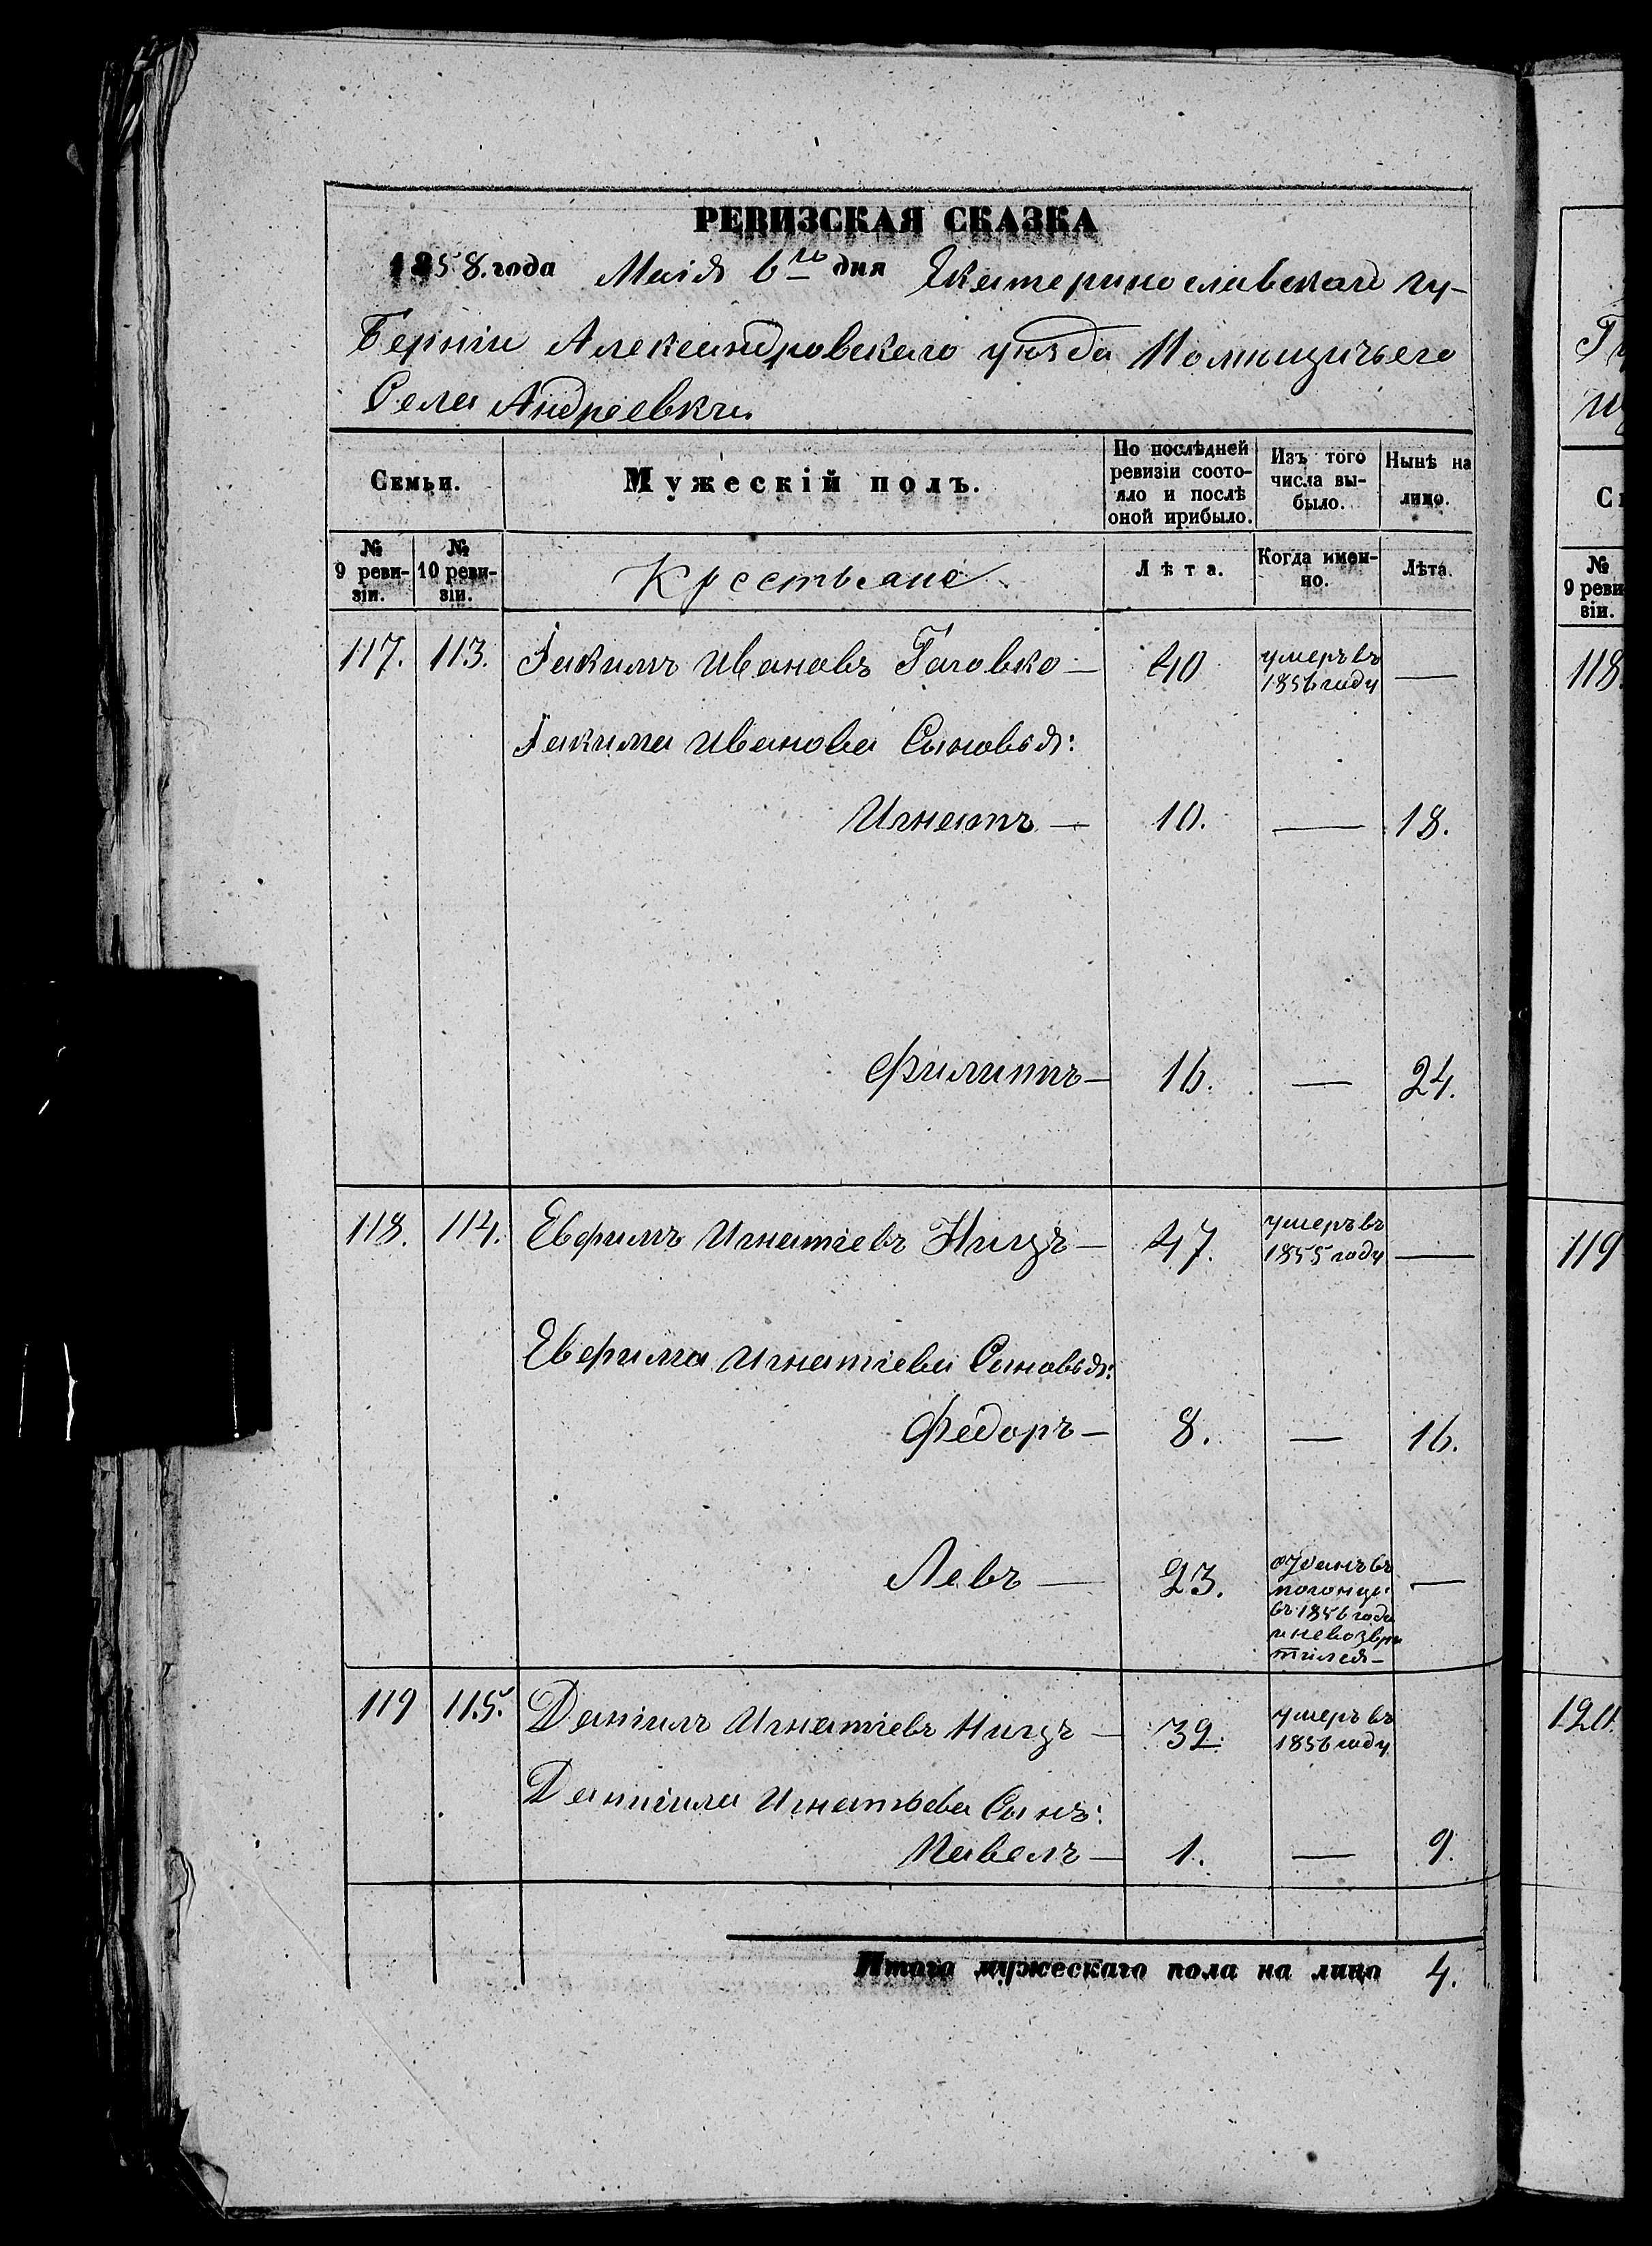 РЕВИЗСКАЯ СКАЗКА
1858. года Маія 6го дня Екатеринославской гу-
берніи Александровскаго уѣзда Помѣщичьего
Села Андреевки.
Семьи.
Мужескій полъ.
По послѣдней
ревизіи состо-
яло и послѣ
оной прибыло.
Изъ того
числа вы-
было.
Нынѣ на
лицо.
№
9 реви-
зіи.
№
10 реви-
зіи.
Крестьяне
Лѣта.
Когда имен-
но.
Лѣта.
117. 113. Іакимъ Ивановъ Головко — 40 умеръ въ —
1856 году
Іакима Иванова Сыновья:
Игнатъ — 10. — 18.
Филиппъ — 16. — 24.
118. 114. Евфимъ Игнатіевъ — 47. умеръ въ —
1855 году
Евфима Игнатіева Сыновья:
Федоръ — 8. — 16.
Левъ — 23. отданъ въ —
погонцы
въ 1856 году
и невозвра
тился —
119 115. Даніилъ Игнатіевъ — 39. умеръ въ
1856 году
Даниила Игнатьева Сынъ:
Павелъ — 1. — 9.
Итого мужескаго пола на лицо 4.
№
9 реви
зіи.
118.
119
120.